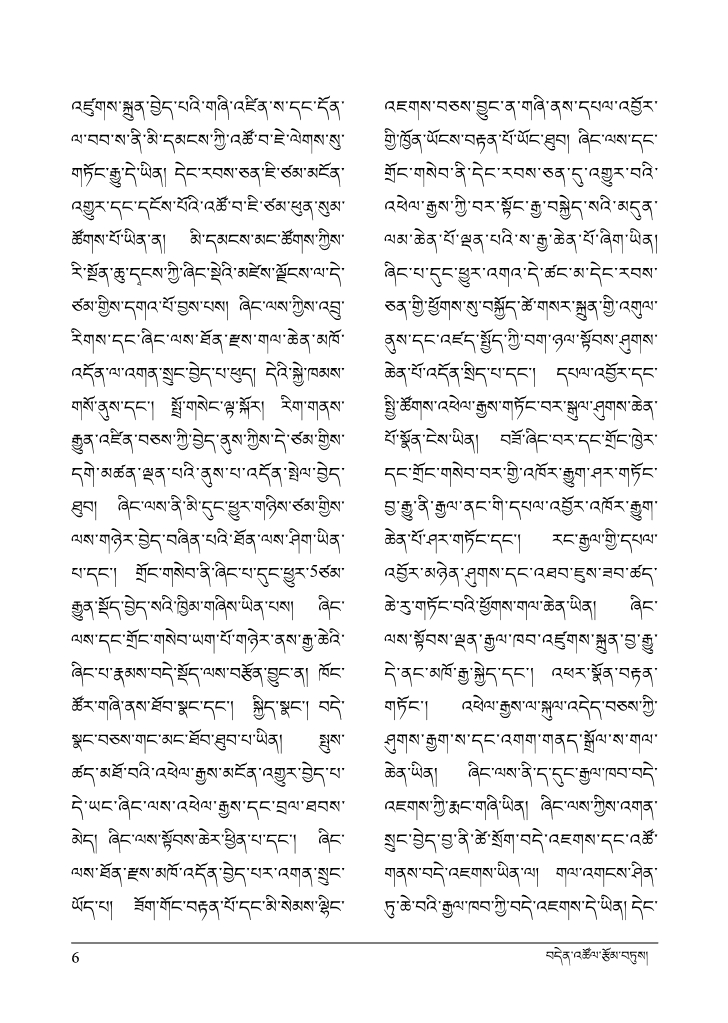 འཛུགས་སྐྲུན་བྱེད་པའི་གཞི་འཛིན་ས་དང་དོན་
ལ་བབ་ས་ནི་མི་དམངས་ཀྱི་འཚོ་བ་ཇེ་ལེགས་སུ་
གཏོང་རྒྱུ་དེ་ཡིན། དེང་རབས་ཅན་ཇི་ཙམ་མངོན་
འགྱུར་དང་དངོས་པོའི་འཚོ་བ་ཇི་ཙམ་ཕུན་སུམ་
ཚོགས་པོ་ཡིན་ན། མི་དམངས་མང་ཚོགས་ཀྱིས་
རི་སྔོན་ཆུ་དྭངས་ཀྱི་ཞིང་སྡེའི་མཛེས་ལྗོངས་ལ་དེ་
ཙམ་གྱིས་དགའ་པོ་བྱས་པས། ཞིང་ལས་ཀྱིས་འབྲུ་
རིགས་དང་ཞིང་ལས་ཐོན་རྫས་གལ་ཆེན་མཁོ་
འདོན་ལ་འགན་སྲུང་བྱེད་པ་ཕུད། དེའི་སྐྱེ་ཁམས་
གསོ་ནུས་དང་། སྤྲོ་གསེང་ལྟ་སྐོར། རིག་གནས་
རྒྱུན་འཛིན་བཅས་ཀྱི་བྱེད་ནུས་ཀྱིས་དེ་ཙམ་གྱིས་
དགེ་མཚན་ལྡན་པའི་ནུས་པ་འདོན་སྤེལ་བྱེད་
ཐུབ། ཞིང་ལས་ནི་མི་དུང་ཕྱུར་གཉིས་ཙམ་གྱིས་
ལས་གཉེར་བྱེད་བཞིན་པའི་ཐོན་ལས་ཤིག་ཡིན་
པ་དང་། གྲོང་གསེབ་ནི་ཞིང་པ་དུང་ཕྱུར་5ཙམ་
རྒྱུན་སྡོད་བྱེད་སའི་ཁྱིམ་གཞིས་ཡིན་པས། ཞིང་
ལས་དང་གྲོང་གསེབ་ཡག་པོ་གཉེར་ནས་རྒྱ་ཆེའི་
ཞིང་པ་རྣམས་བདེ་སྡོད་ལས་བརྩོན་བྱུང་ན། ཁོང་
ཚོར་གཞི་ནས་ཐོབ་སྣང་དང་། སྐྱིད་སྣང་། བདེ་
སྣང་བཅས་གང་མང་ཐོབ་ཐུབ་པ་ཡིན། སྤུས་
ཚད་མཐོ་བའི་འཕེལ་རྒྱས་མངོན་འགྱུར་བྱེད་པ་
དེ་ཡང་ཞིང་ལས་འཕེལ་རྒྱས་དང་བྲལ་ཐབས་
མེད། ཞིང་ལས་སྟོབས་ཆེར་ཕྱིན་པ་དང་། ཞིང་
ལས་ཐོན་རྫས་མཁོ་འདོན་བྱེད་པར་འགན་སྲུང་
ཡོད་པ། ཟོག་གོང་བརྟན་པོ་དང་མི་སེམས་ལྷིང་
འཇགས་བཅས་བྱུང་ན་གཞི་ནས་དཔལ་འབྱོར་
གྱི་ཁྱོན་ཡོངས་བརྟན་པོ་ཡོང་ཐུབ། ཞིང་ལས་དང་
གྲོང་གསེབ་ནི་དེང་རབས་ཅན་དུ་འགྱུར་བའི་
འཕེལ་རྒྱས་ཀྱི་བར་སྟོང་རྒྱ་བསྐྱེད་སའི་མདུན་
ལམ་ཆེན་པོ་ལྡན་པའི་ས་རྒྱ་ཆེན་པོ་ཞིག་ཡིན།
ཞིང་པ་དུང་ཕྱུར་འགའ་དེ་ཚང་མ་དེང་རབས་
ཅན་གྱི་ཕྱོགས་སུ་བསྐྱོད་ཚེ་གསར་སྐྲུན་གྱི་འགུལ་
ནུས་དང་འཛད་སྤྱོད་ཀྱི་བག་ཉལ་སྟོབས་ཤུགས་
ཆེན་པོ་འདོན་སྲིད་པ་དང་། དཔལ་འབྱོར་དང་
སྤྱི་ཚོགས་འཕེལ་རྒྱས་གཏོང་བར་སྐུལ་ཤུགས་ཆེན་
པོ་སྣོན་ངེས་ཡིན། བཟོ་ཞིང་བར་དང་གྲོང་ཁྱེར་
དང་གྲོང་གསེབ་བར་གྱི་འཁོར་རྒྱུག་ཤར་གཏོང་
བྱ་རྒྱུ་ནི་རྒྱལ་ནང་གི་དཔལ་འབྱོར་འཁོར་རྒྱུག་
ཆེན་པོ་ཤར་གཏོང་དང་། རང་རྒྱལ་གྱི་དཔལ་
འབྱོར་མཉེན་ཤུགས་དང་འཐབ་ཇུས་ཟབ་ཚད་
ཆེ་རུ་གཏོང་བའི་ཕྱོགས་གལ་ཆེན་ཡིན། ཞིང་
ལས་སྟོབས་ལྡན་རྒྱལ་ཁབ་འཛུགས་སྐྲུན་བྱ་རྒྱུ་
དེ་ནང་མཁོ་རྒྱ་སྐྱེད་དང་། འཕར་སྣོན་བརྟན་
གཏོང་། འཕེལ་རྒྱས་ལ་སྐུལ་འདེད་བཅས་ཀྱི་
ཤུགས་རྒྱག་ས་དང་འགག་གནད་སྒྲོལ་ས་གལ་
ཆེན་ཡིན། ཞིང་ལས་ནི་ད་དུང་རྒྱལ་ཁབ་བདེ་
འཇགས་ཀྱི་རྨང་གཞི་ཡིན། ཞིང་ལས་ཀྱིས་འགན་
སྲུང་བྱེད་བྱ་ནི་ཚེ་སྲོག་བདེ་འཇགས་དང་འཚོ་
གནས་བདེ་འཇགས་ཡིན་ལ། གལ་འགངས་ཤིན་
ཏུ་ཆེ་བའི་རྒྱལ་ཁབ་ཀྱི་བདེ་འཇགས་དེ་ཡིན། དེང་
6
བདེན་འཚོལ་རྩོམ་བཏུས།